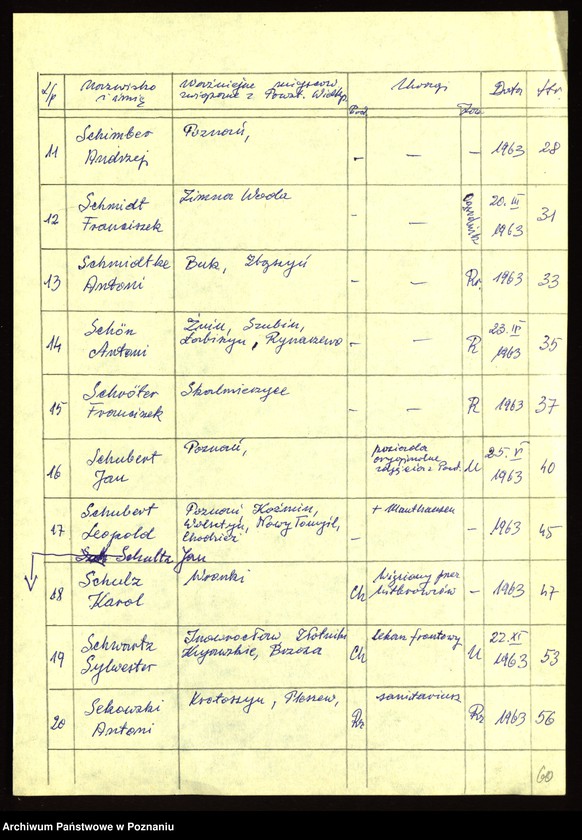 L/p Nazwisko i imię Ważniejsze miejscow. związane z Powst. Wielkp. Poch. Uwagi Zaw. Data Str.
11 Schimber Andrzej Poznań, - — - 1963 28
12 Schmidt Franciszek Zimna Woda - — 20. III 1963 31
13 Schmidtke Antoni Buk, Zbąszyń - — Rr. 1963 33
14 Schön Antoni Żnin, Szubin, Łabiszyn, Rynarzewo - — R 23. III 1963 35
15 Schröter Franciszek Skalmierzyce - — R 1963 37
16 Schubert Jan Poznań, posiada oryginalne zdjęcia z Powst. U 25. V 1963 40
17 Schubert Leopold Poznań, Koźmin, Wolsztyn, Nowy Tomyśl, Chodzież - + Mauthausen - 1963 45
Schultz Jan
18 Schulz Karol Wronki Ch Więziony przez hitlerowców - 1963 47
19 Schwartz Sylwester Inowrocław, Złotniki Kujawskie, Brzoza Ch lekarz frontowy U 22. XI 1963 53
20 Sekowski Antoni Krotoszyn, Pleszew, Rz sanitariusz Rz 1963 56
60
Archiwum Państwowe w Poznaniu